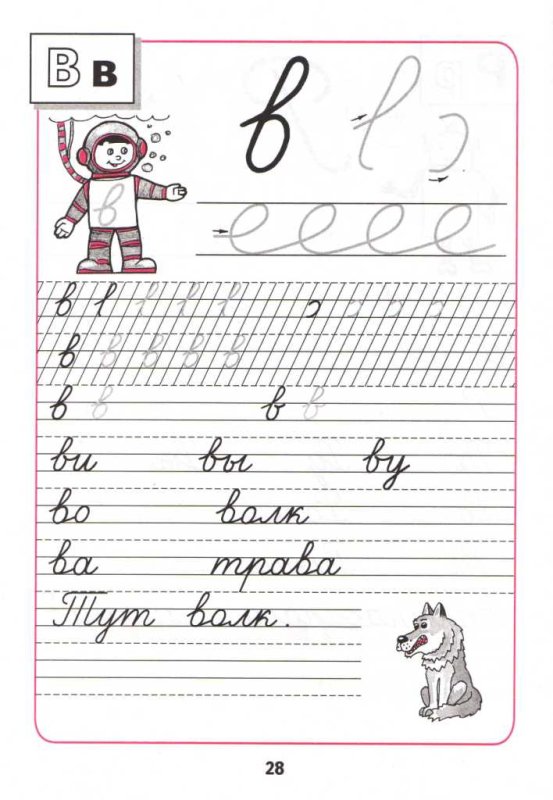 В в
в
в
в в
в в
в в в в
ви вы ву
во волк
ва трава
Тут волк.
28